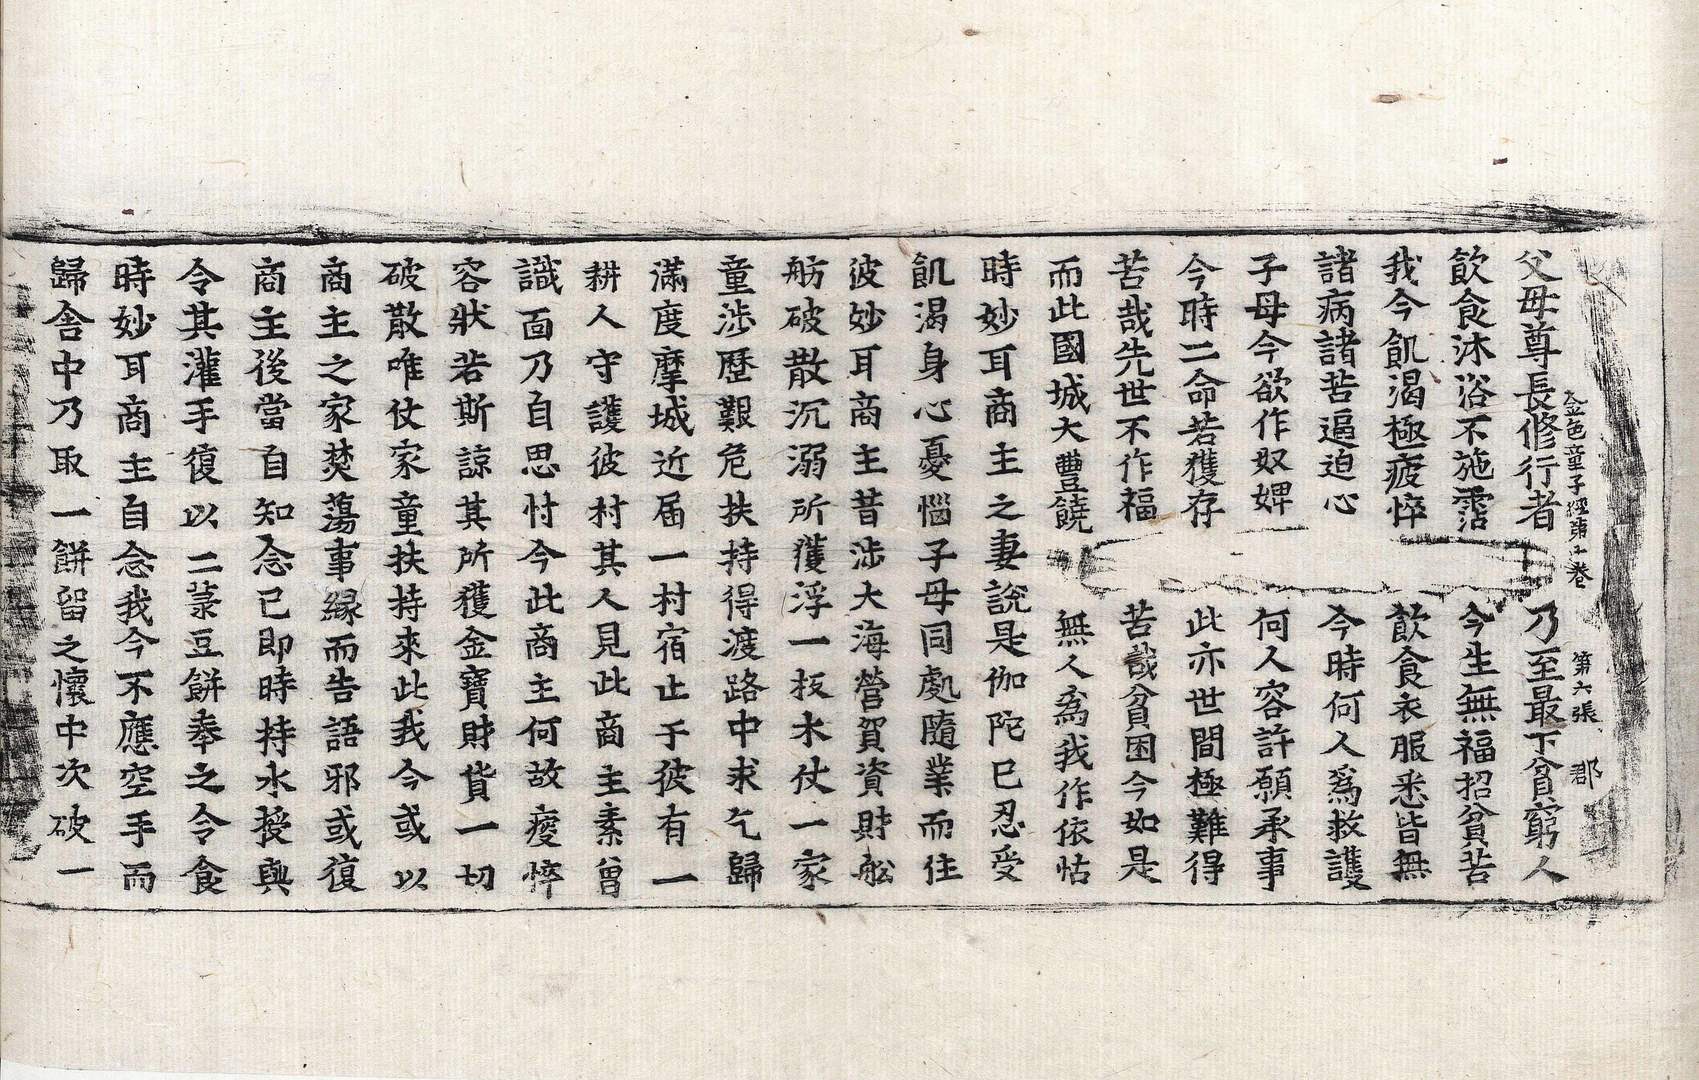 金色童子經第十卷　第六張　郡
父母尊長修行者　乃至最下貧窮人
飲食沐浴不施霑　今生無福招貧苦
我今飢渴極疲悴　飲食衣服悉皆無
諸病諸苦逼迫心　今時何人爲救護
子母今欲作奴婢　何人容許願承事
今時二命若獲存　此亦世間極難得
苦哉先世不作福　苦哉貧困今如是
而此國城大豐饒　無人爲我作依怙
時妙耳商主之妻說是伽陀已忍受
飢渴身心憂惱子母同處隨業而住
彼妙耳商主昔涉大海營賀資財舩
舫破散沉溺所獲浮一板木仗一家
童涉歷艱危扶持得渡路中求乞歸
滿度摩城近屆一村宿止于彼有一
耕人守護彼村其人見此商主素曾
識面乃自思忖今此商主何故瘦悴
容狀若斯諒其所獲金寶財貨一切
破散唯仗家童扶持來此我今或以
商主之家焚蕩事緣而告語邪或復
商主後當自知念已即時持水授與
令其灌手復以二菉豆餅奉之令食
時妙耳商主自念我今不應空手而
歸舍中乃取一餅留之懷中次破一